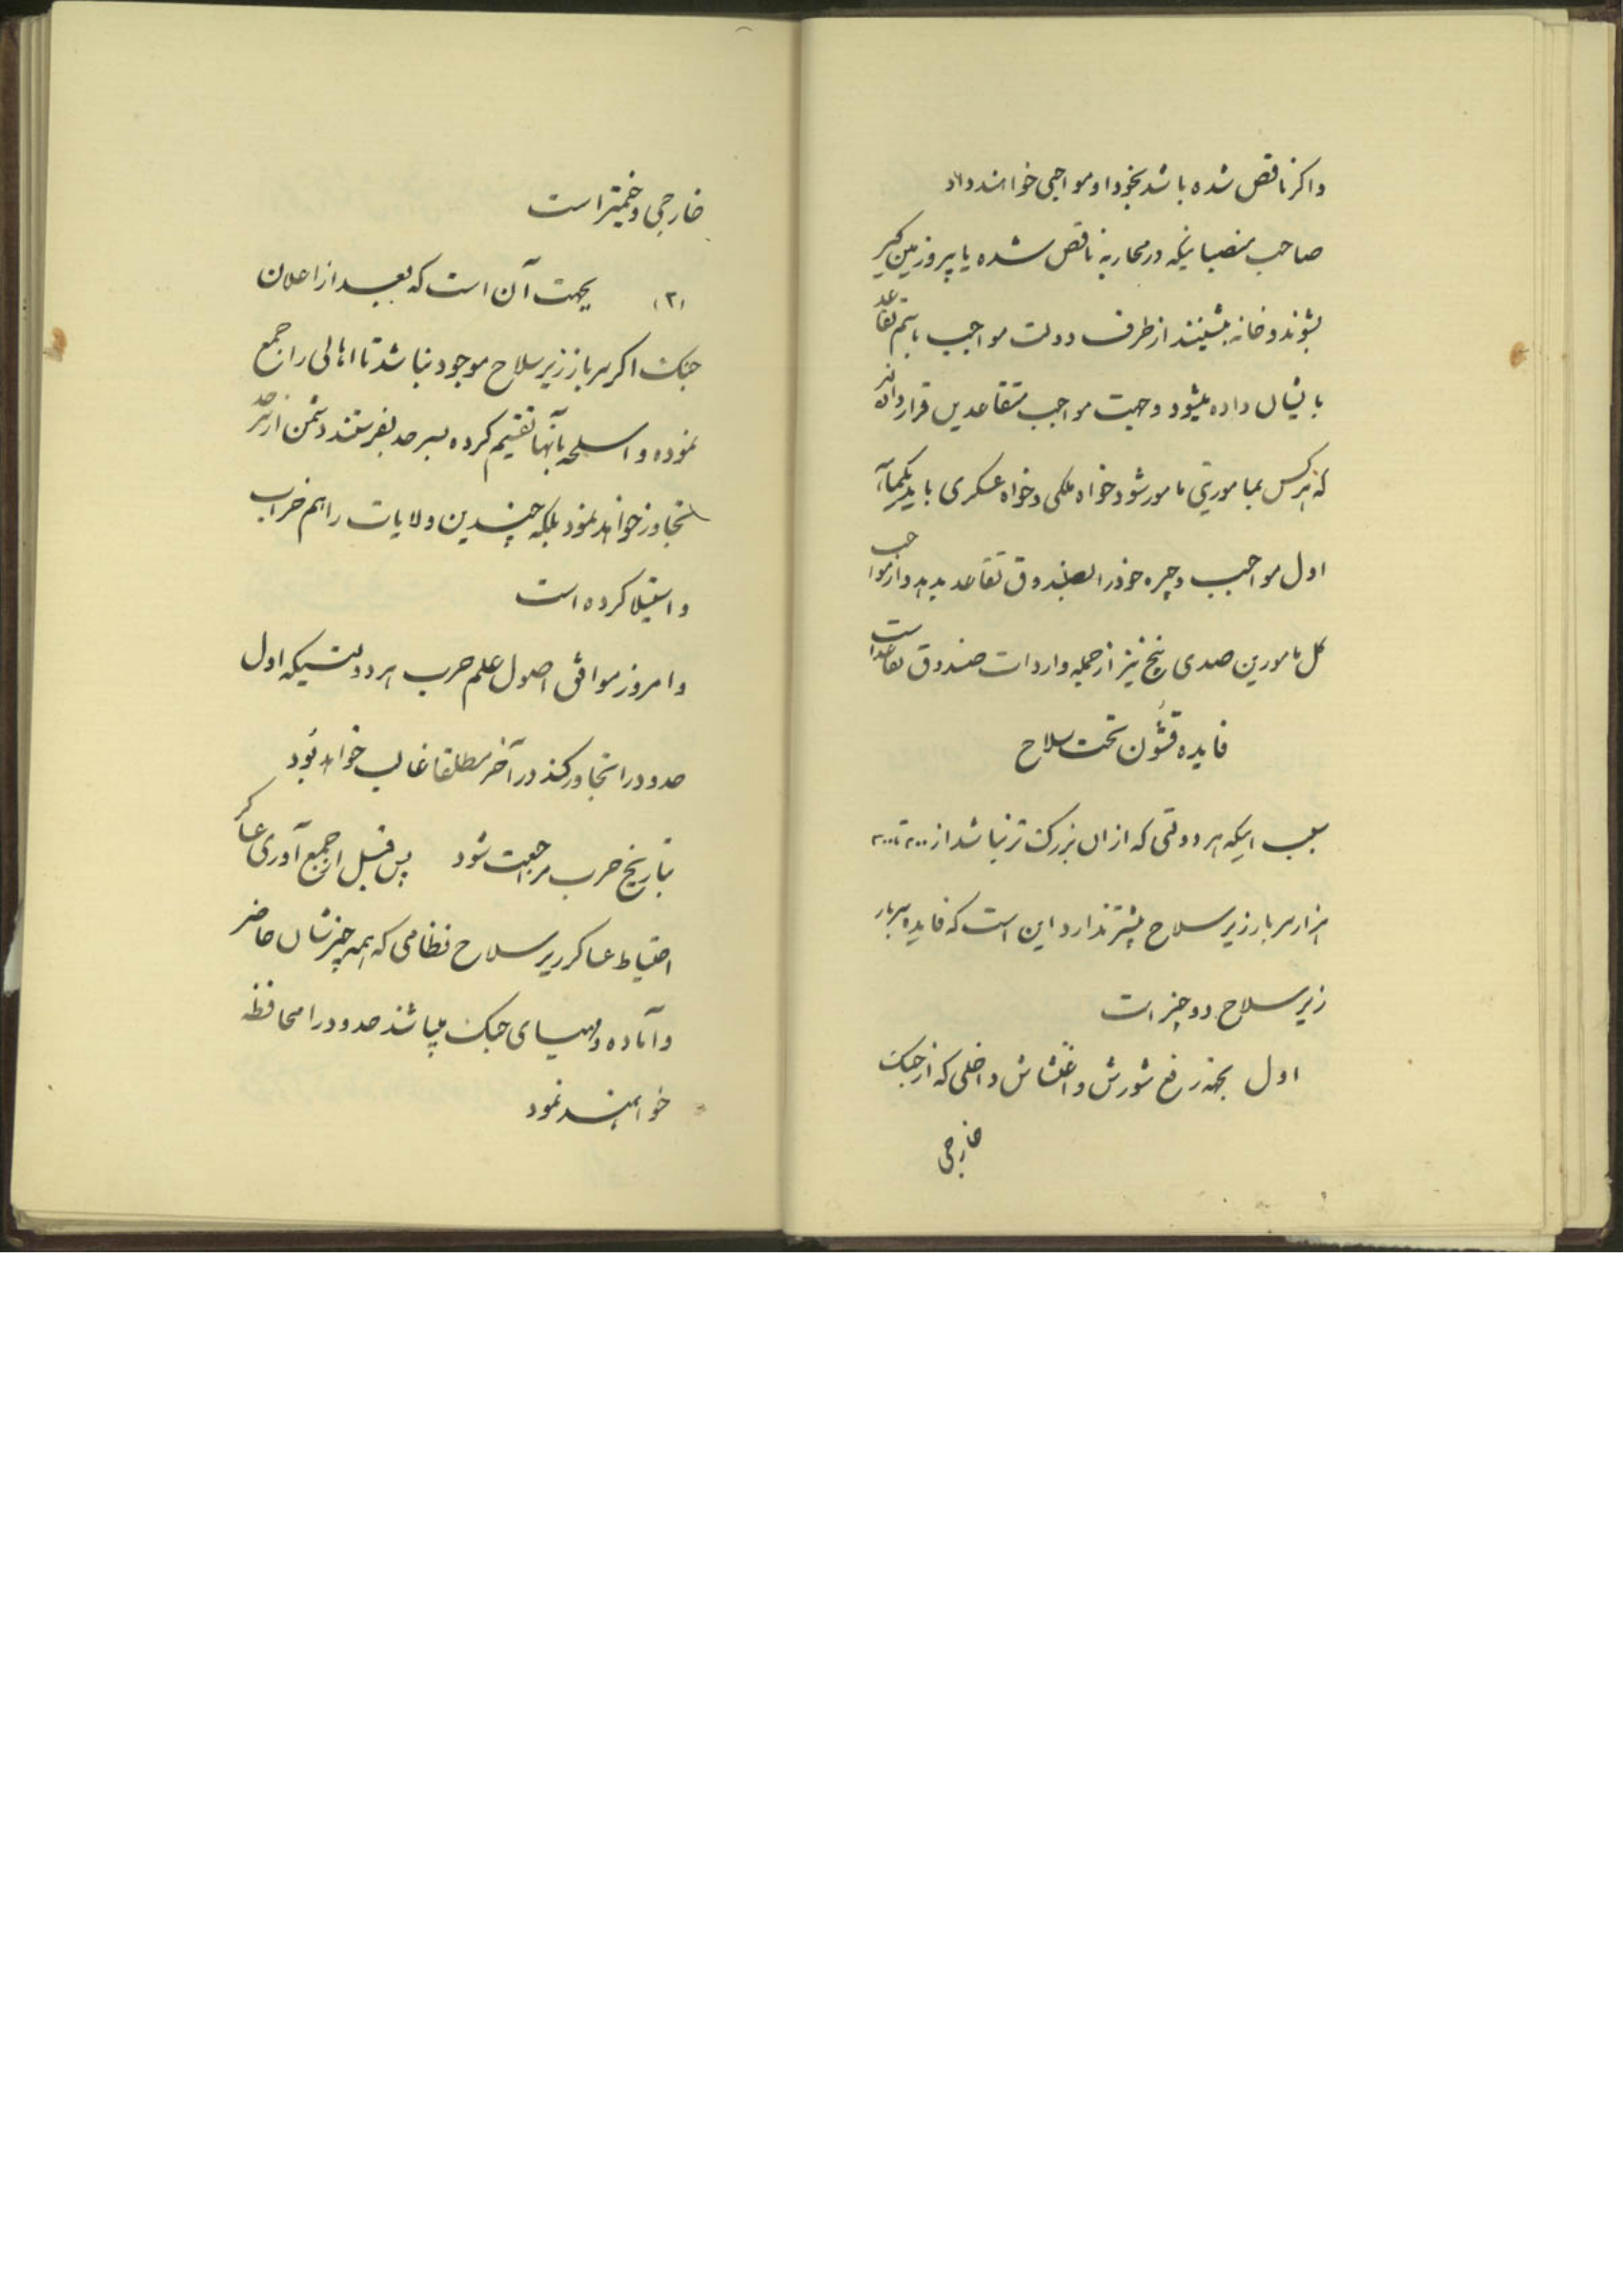 واکر ناقص شده باشد بخود او مواجبی خواهند داد
صاحب منصبانیکه در محاربه ناقص شده یا پیر و زمین کیر
بشوند و خانه بنشینند از طرف دولت مواجب باسم تقاعد
بایشان داده میشود و جهت مواجب متقاعدین قرار داده‌اند
که هر کس بماموریتی مامور شود خواه ملکی و خواه عسکری باید یکماهه
اول مواجب و جیره خود را بصندوق تقاعد بدهد و از مواجب
کل مامورین صدی پنج نیز از جمله واردات صندوق تقاعد است
فایده قشون تحت سلاح
سبب اینکه هر دولتی که از ان بزرک تر نباشد از ۲۰۰ تا ۳۰۰
هزار سرباز زیر سلاح بیشتر ندارد این است که فایده سرباز
زیر سلاح دو چیز است
اول بجهة رفع شورش و اغتشاش داخلی که از جنک
خارجی
خارجی وخیمتر است
(۲) بجهت آن است که بعد از اعلان
جنک اکر سرباز زیر سلاح موجود نباشد تا اهالی را جمع
نموده و اسلحه بآنها تقسیم کرده بسرحد بفرستند دشمن از سرحد
تجاوز خواهد نمود بلکه چندین ولایات را هم خراب
و استیلا کرده است
و امروز موافق اصول علم حرب هر دولتیکه اول
حدود را تجاوز کند در آخر مطلقا غالب خواهد بود
بتاریخ حرب مراجعت شود پس قبل از جمع آوری عساکر
احتیاط عساکر زیر سلاح نظامی که همه چیزشان حاضر
و آماده و مهیای جنک میباشند حدود را محافظه
خواهند نمود